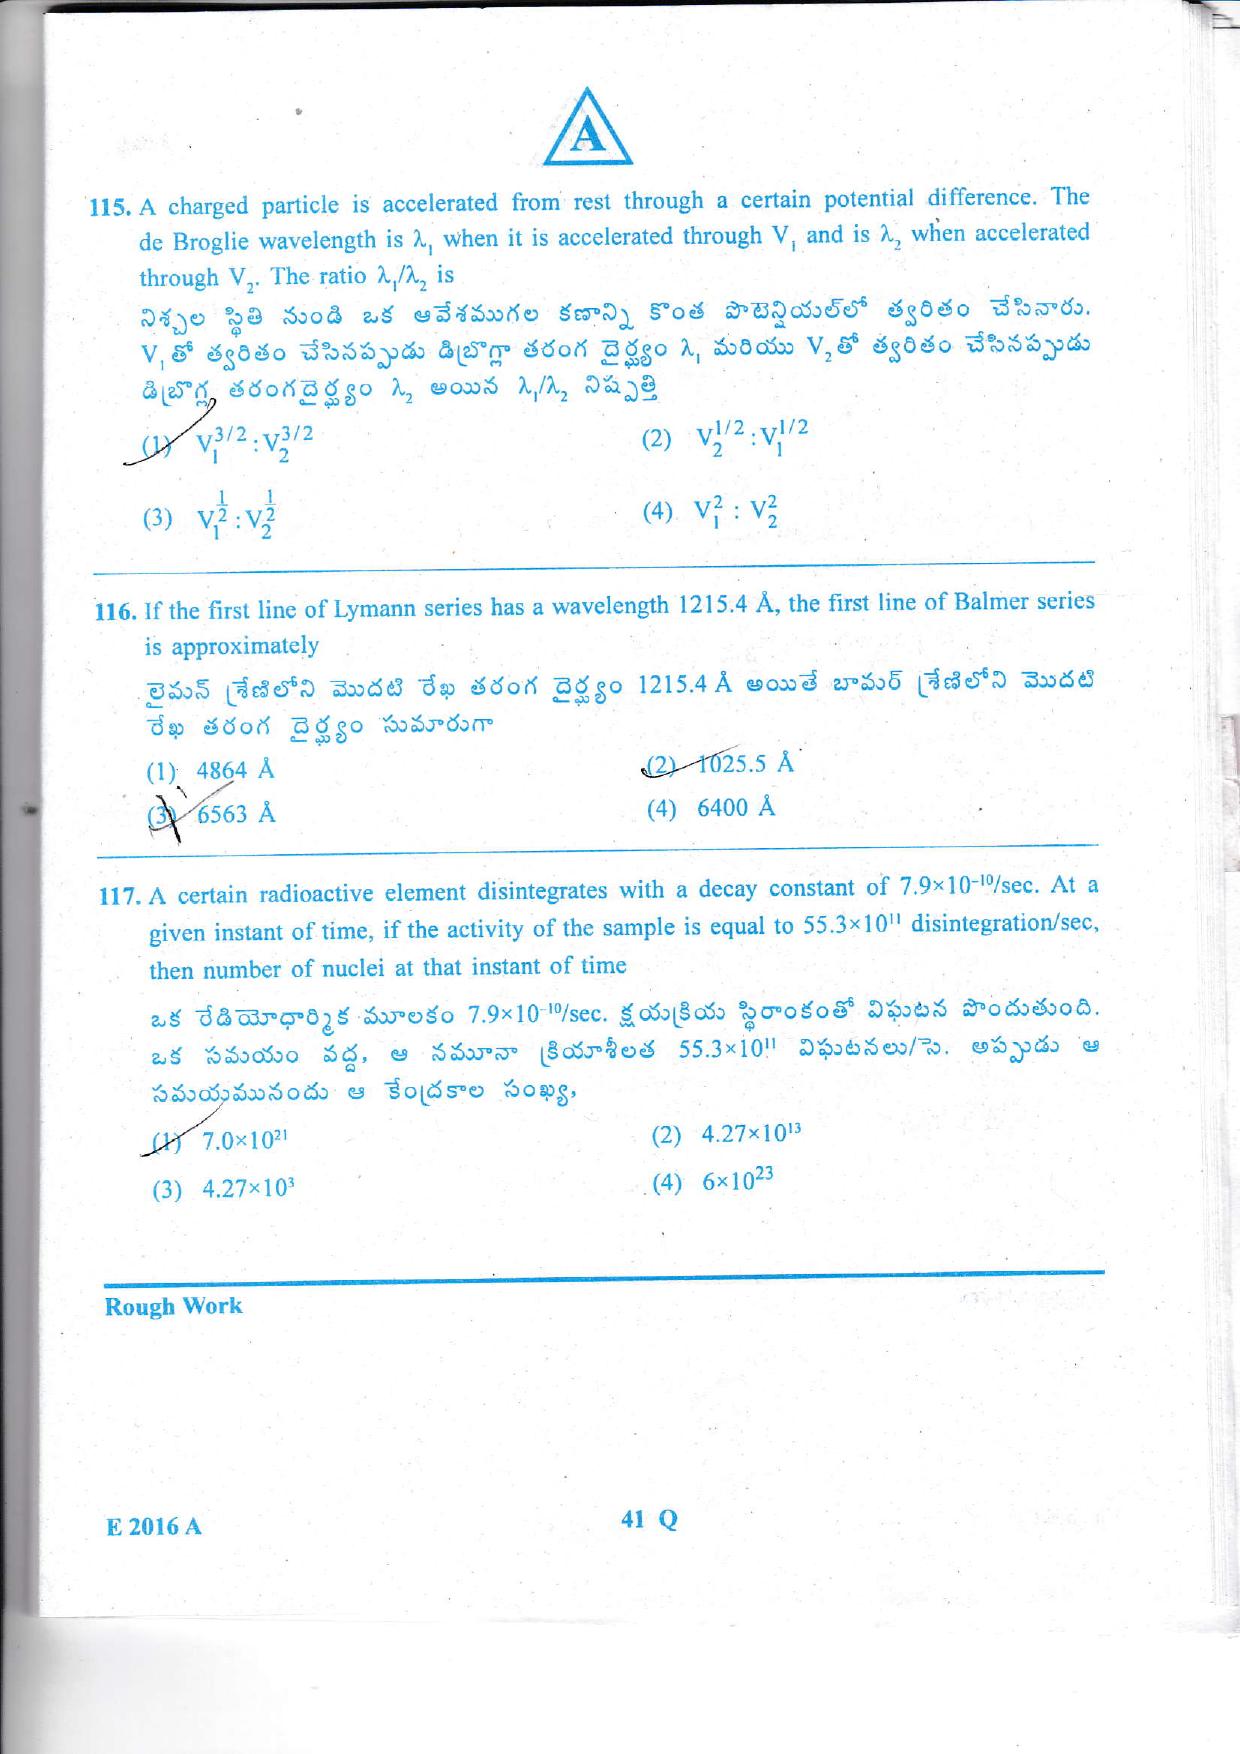 A
115. A charged particle is accelerated from rest through a certain potential difference. The
de Broglie wavelength is λ₁ when it is accelerated through V₁ and is λ₂ when accelerated
through V₂. The ratio λ₁/λ₂ is
నిశ్చల స్థితి నుండి ఒక ఆవేశముగల కణాన్ని కొంత పొటెన్షియల్‌లో త్వరితం చేసినారు.
V₁తో త్వరితం చేసినప్పుడు డిబ్రొగ్లా తరంగ దైర్ఘ్యం λ₁ మరియు V₂తో త్వరితం చేసినప్పుడు
డిబ్రొగ్లి తరంగదైర్ఘ్యం λ₂ అయిన λ₁/λ₂ నిష్పత్తి
(1) V₁^3/2 : V₂^3/2 (2) V₂^1/2 : V₁^1/2
(3) V₁^1/2 : V₂^1/2 (4) V₁² : V₂²
116. If the first line of Lymann series has a wavelength 1215.4 Å, the first line of Balmer series
is approximately
లైమన్ శ్రేణిలోని మొదటి రేఖ తరంగ దైర్ఘ్యం 1215.4 Å అయితే బామర్ శ్రేణిలోని మొదటి
రేఖ తరంగ దైర్ఘ్యం సుమారుగా
(1) 4864 Å (2) 1025.5 Å
(3) 6563 Å (4) 6400 Å
117. A certain radioactive element disintegrates with a decay constant of 7.9×10⁻¹⁰/sec. At a
given instant of time, if the activity of the sample is equal to 55.3×10¹¹ disintegration/sec,
then number of nuclei at that instant of time
ఒక రేడియోధార్మిక మూలకం 7.9×10⁻¹⁰/sec. క్షయక్రియ స్థిరాంకంతో విఘటన పొందుతుంది.
ఒక సమయం వద్ద, ఆ నమూనా క్రియాశీలత 55.3×10¹¹ విఘటనలు/సె. అప్పుడు ఆ
సమయమునందు ఆ కేంద్రకాల సంఖ్య,
(1) 7.0×10²¹ (2) 4.27×10¹³
(3) 4.27×10³ (4) 6×10²³
Rough Work
E 2016 A 41 Q